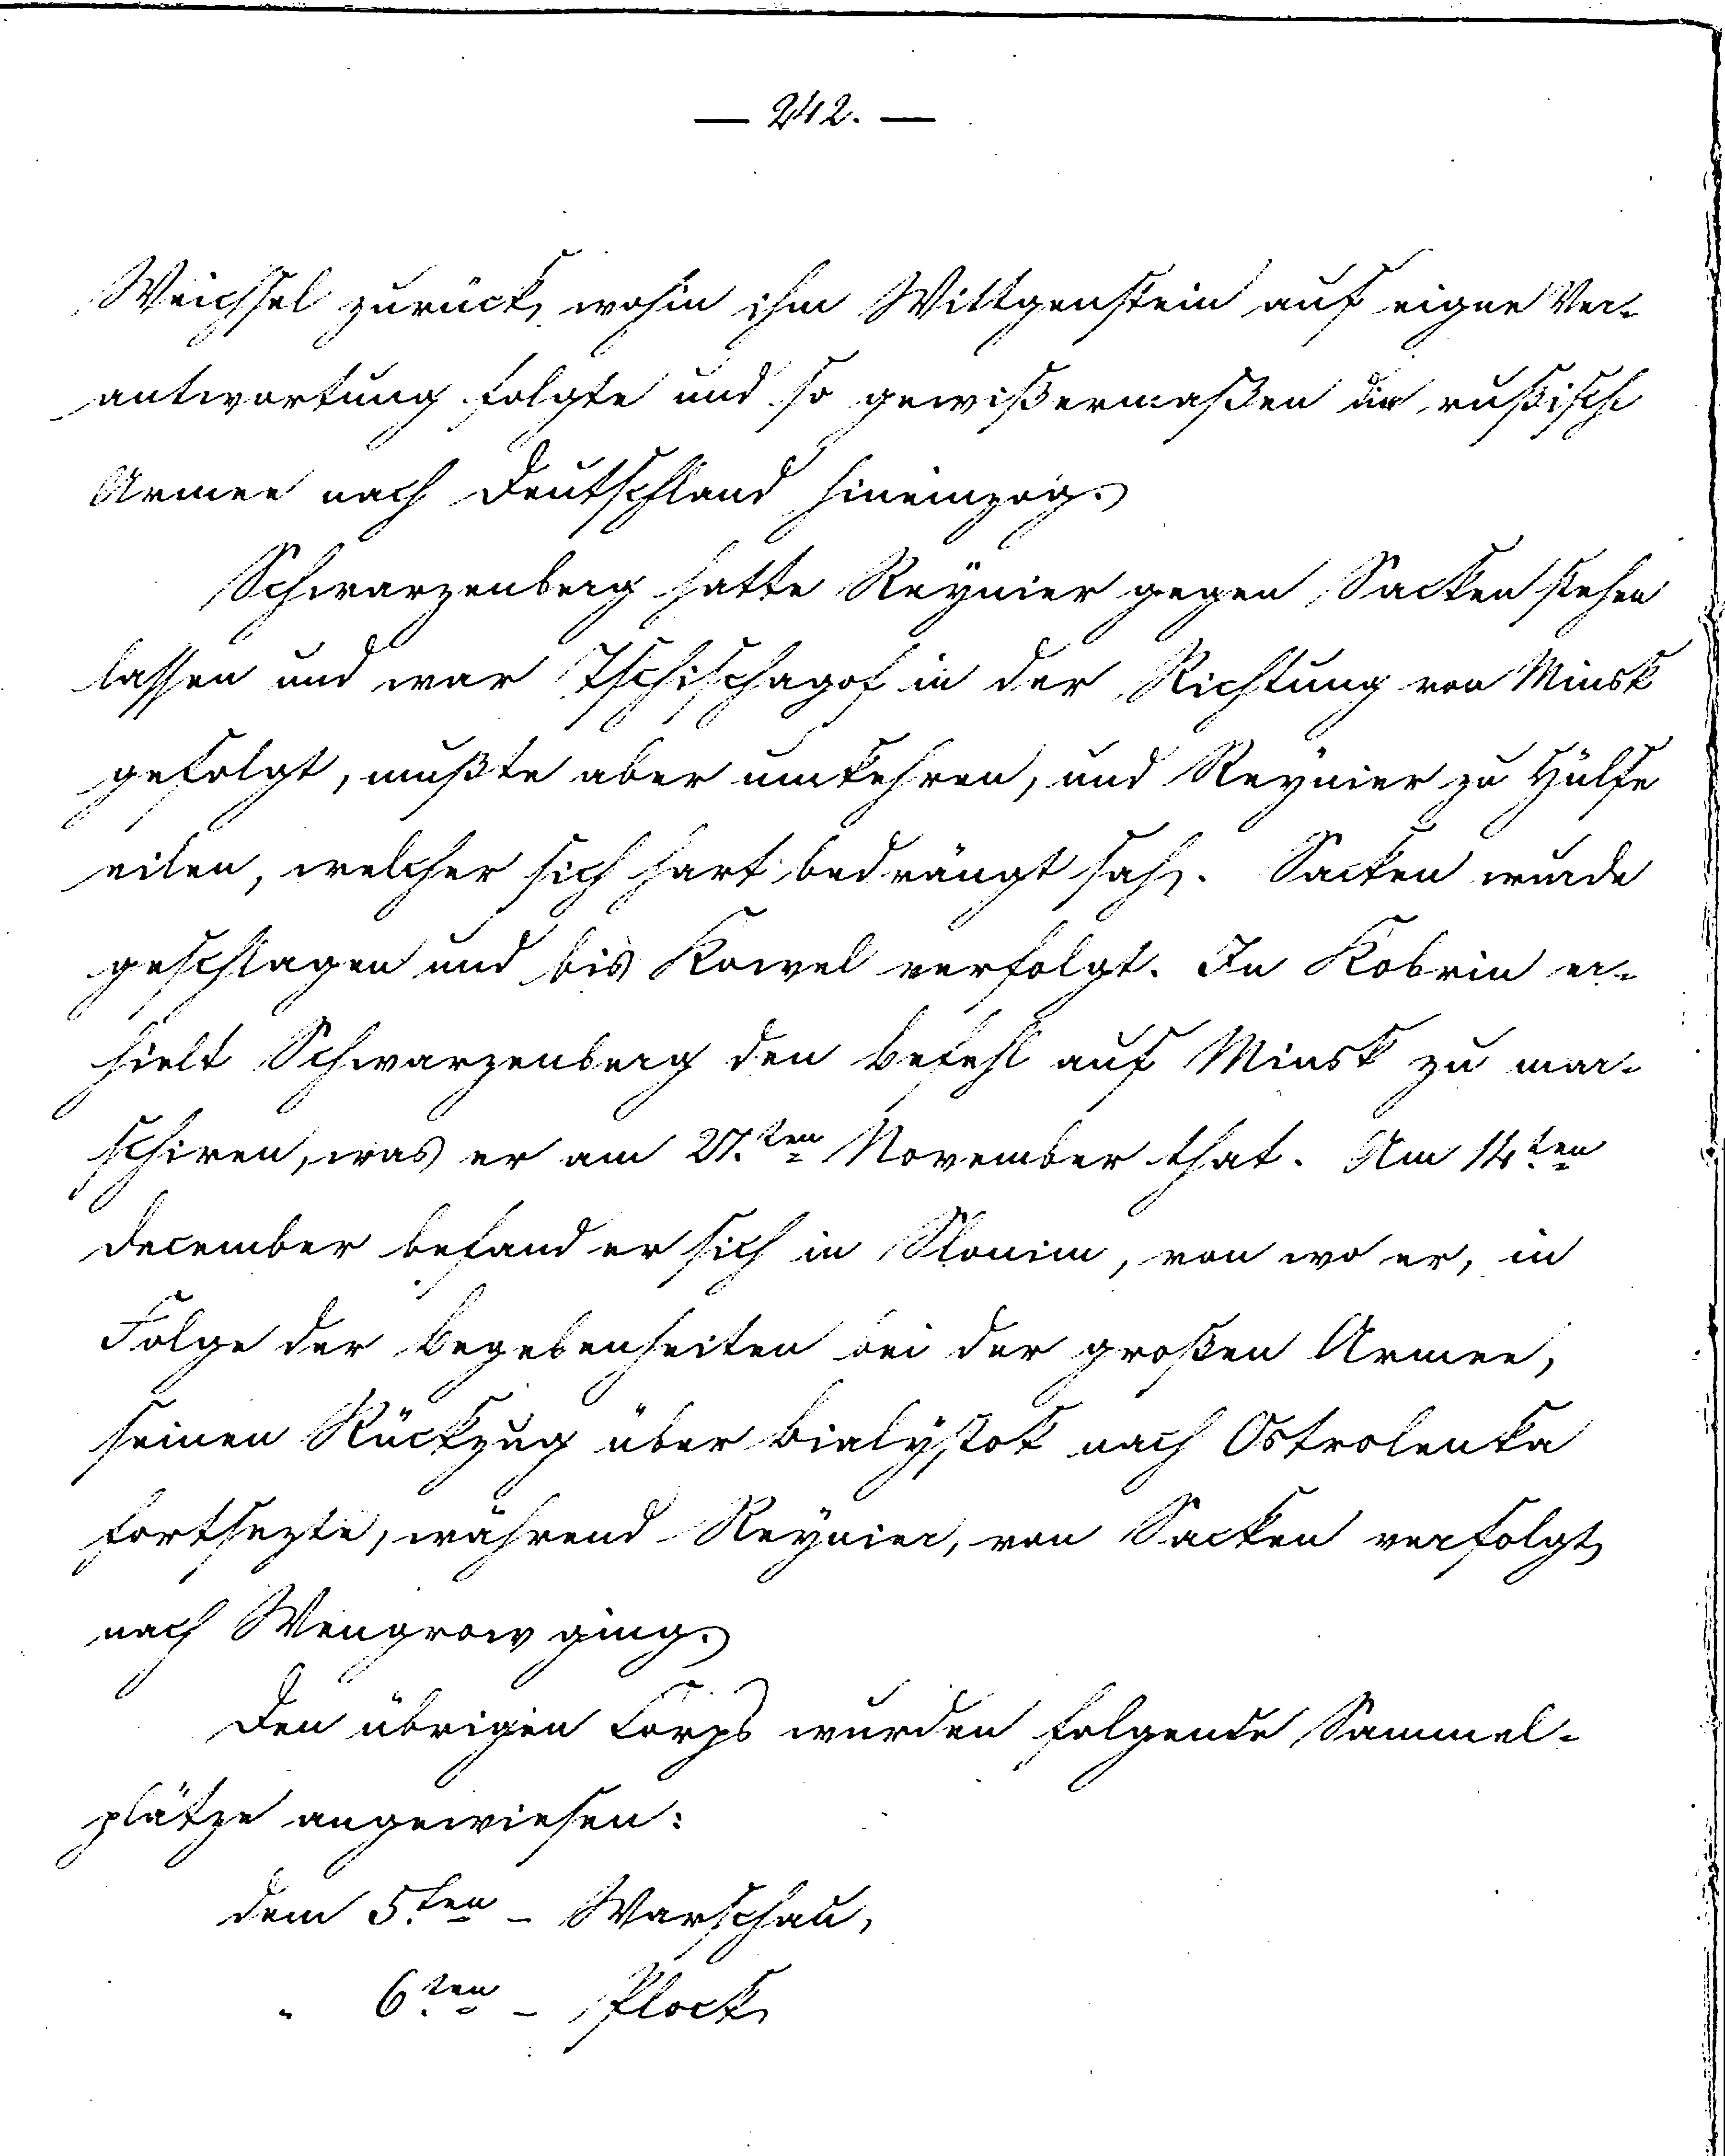 — 242. —
Weichsel zurück, wohin ihm Wittgenstein auf eigne Ver-
antwortung folgte und so gewißermaßen die rußische
Armee nach Deutschland hineinzog.
Schwarzenberg hatte Reynier gegen Sacken stehen
lassen und war Tschischagof in der Richtung von Minsk
gefolgt, mußte aber umkehren, und Reynier zu Hülfe
eilen, welcher sich hart bedrängt sah. Sacken wurde
geschlagen und bis Kowel verfolgt. In Kobrin er-
hielt Schwarzenberg den Befehl auf Minsk zu mar-
schiren, was er am 27.ten November that. Am 14ten
December befand er sich in Slonim, von wo er, in
Folge der Begebenheiten bei der großen Armee,
seinen Rückzug über Bialystok nach Ostrolenka
fortsezte, während Reynier, von Sacken verfolgt,
nach Wengrow ging.
Den übrigen Corps wurden folgende Sammel-
plätze angewiesen:
dem 5.ten – Warschau,
" 6.ten – Plock,